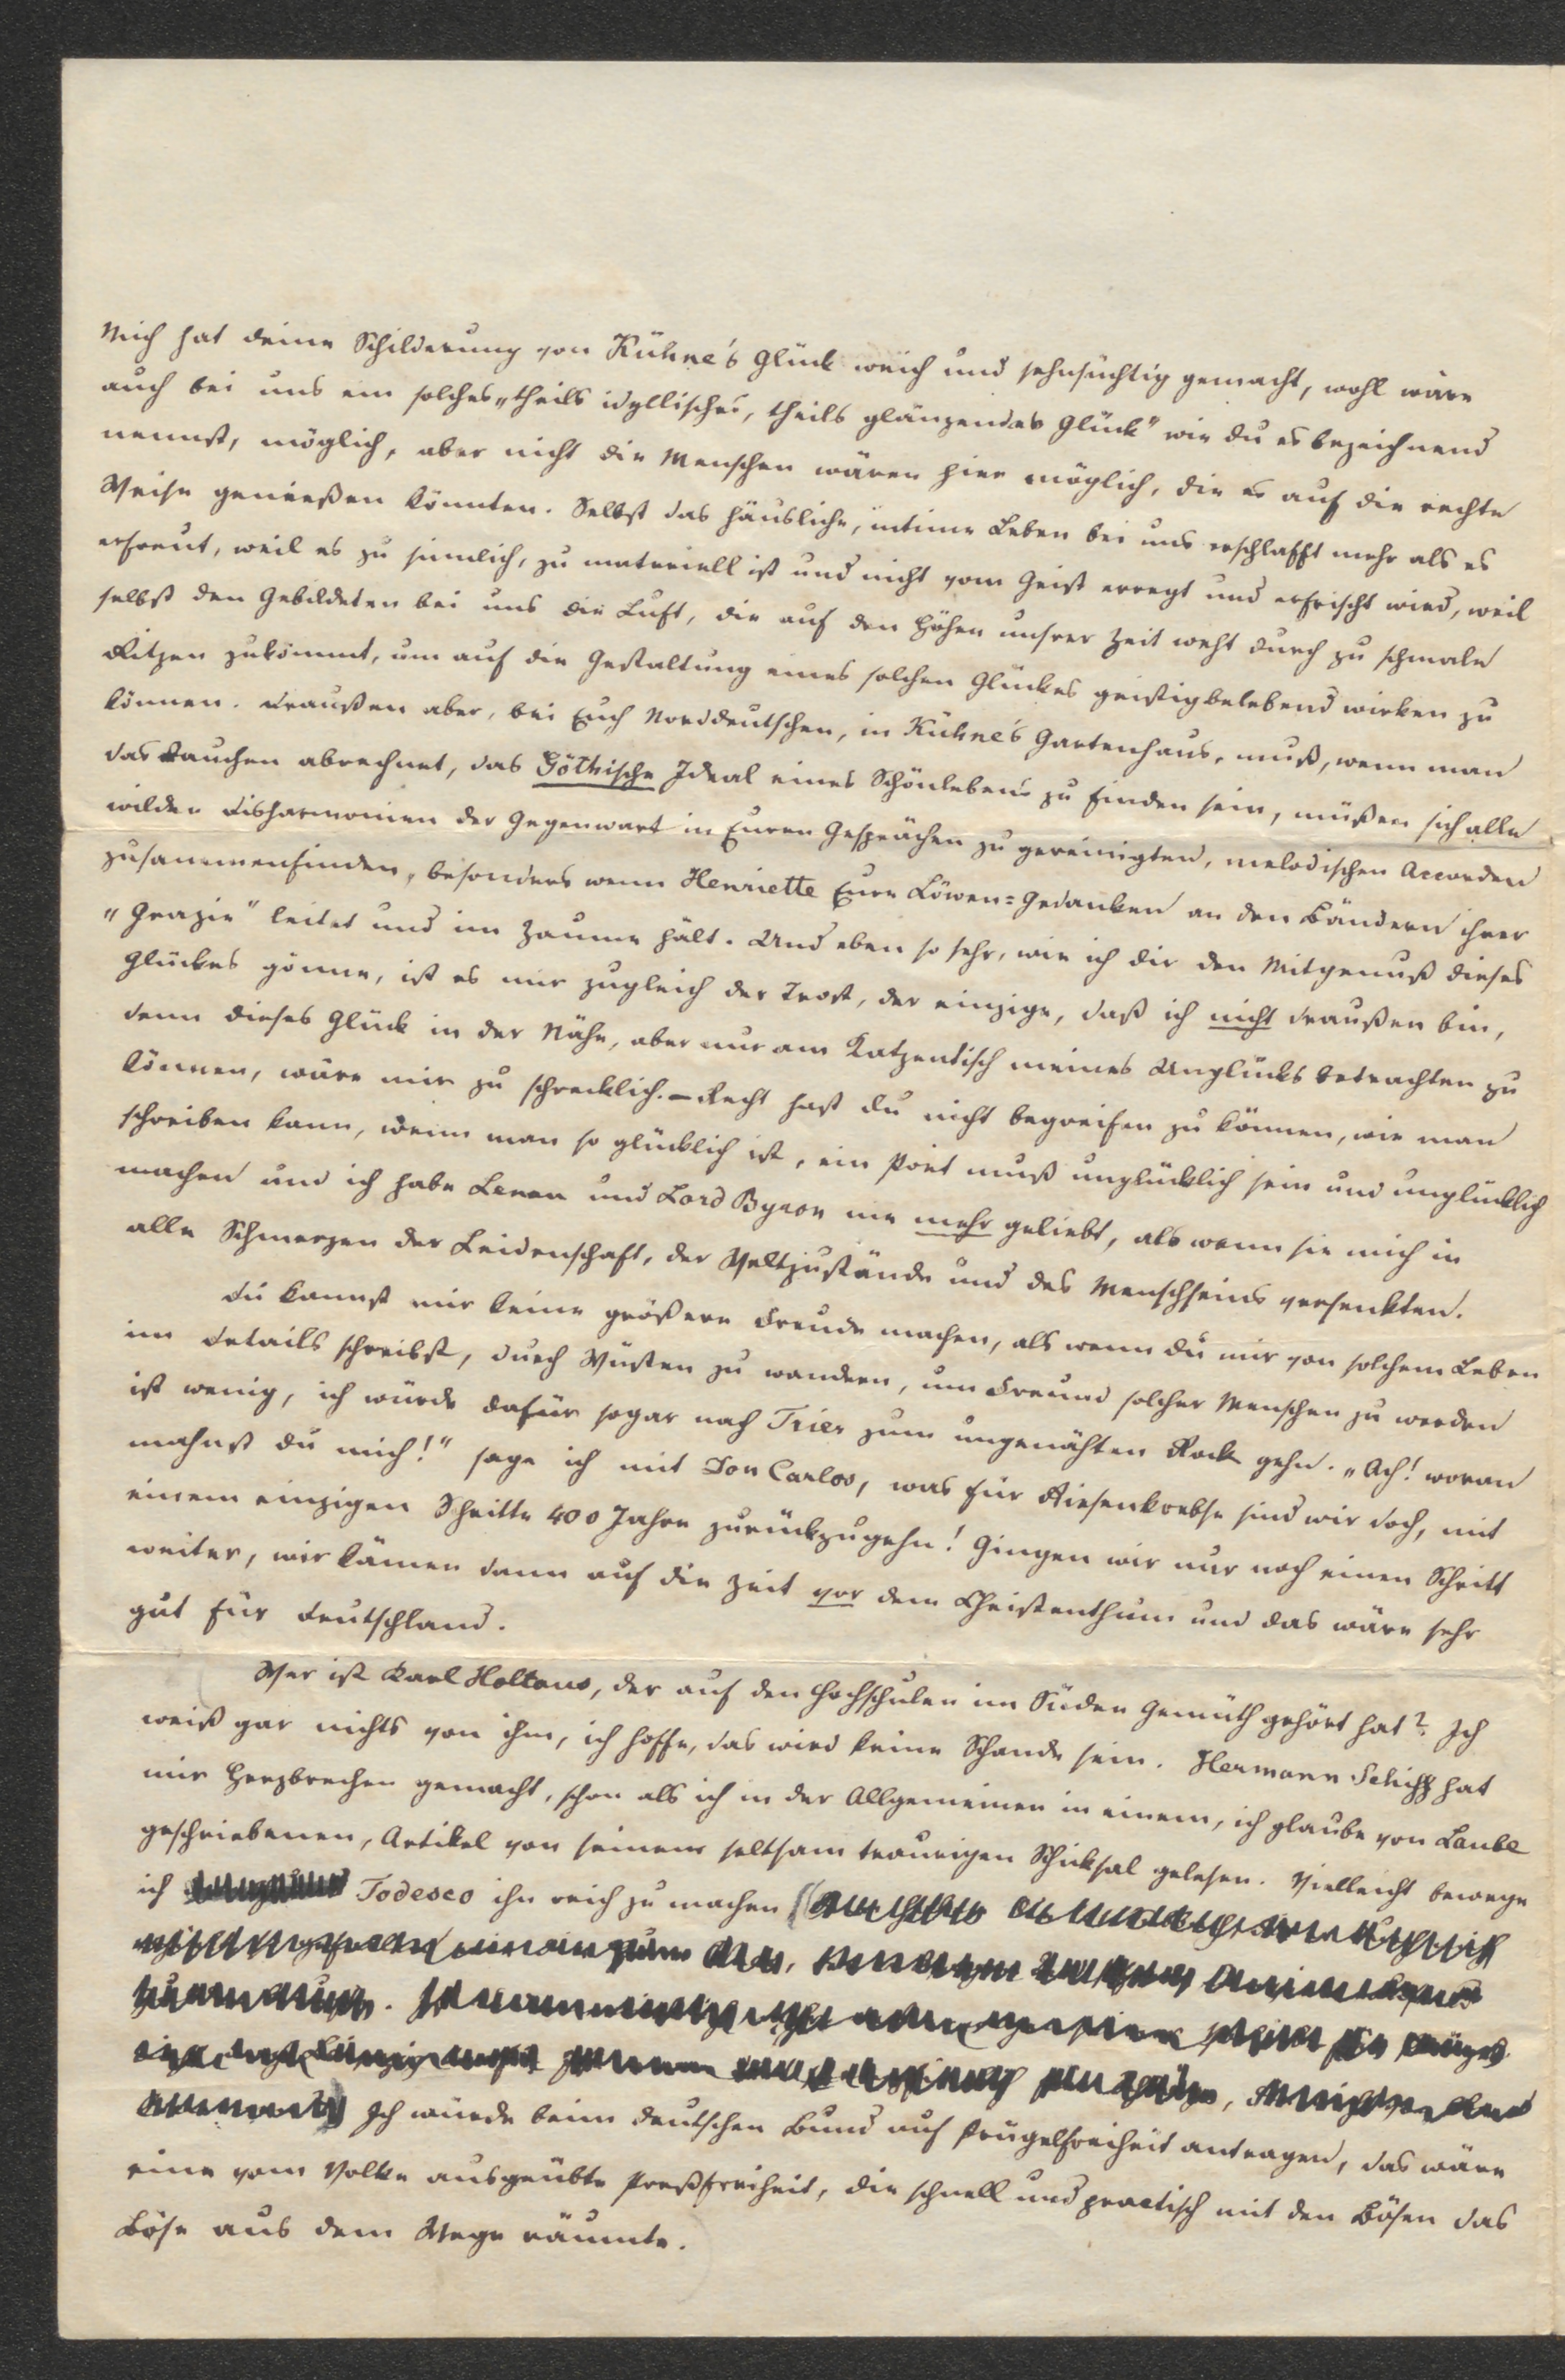 Mich hat deine Schilderung von Kühne's Glück weich und sehnsüchtig gemacht, wohl wäre
auch bei uns ein solches „theils idyllisches, theils glänzendes Glück" wie du es bezeichnend
nennst, möglich, aber nicht die Menschen wären hier möglich, die es auf die rechte
Weise genießen könnten. Selbst das häusliche, intime Leben bei uns erschlafft mehr als es
erfreut, weil es zu sinnlich, zu materiell ist und nicht vom Geist erregt und erfrischt wird, weil
selbst den Gebildeten bei uns die Luft, die auf den Höhen unsrer Zeit weht durch zu schmale
Ritzen zukömmt, um auf die Gestaltung eines solchen Glückes geistig belebend wirken zu
können. Draußen aber, bei Euch Norddeutschen, in Kühne's Gartenhaus, muß, wenn man
das Rauchen abrechnet, das Göthische Ideal eines Schönlebens zu finden sein, müßen sich alle
wilden Disharmonien der Gegenwart in Euren Gesprächen zu gereinigten, melodischen Accorden
zusammenfinden, besonders wenn Henriette Eure Löwen=Gedanken an den Bändern ihrer
„Grazie" leitet und im Zaume hält. Und eben so sehr, wie ich dir den Mitgenuß dieses
Glückes gönne, ist es mir zugleich der Trost, der einzige, daß ich nicht draußen bin,
denn dieses Glück in der Nähe, aber nur am Katzentisch meines Unglücks betrachten zu
können, wäre mir zu schrecklich. – Recht hast du nicht begreifen zu können, wie man
schreiben kann, wenn man so glücklich ist, ein Poet muß unglücklich sein und unglücklich
machen und ich habe Lenau und Lord Byron nie mehr geliebt, als wenn sie mich in
alle Schmerzen der Leidenschaft, der Weltzustände und des Menschseins versenkten.
Du kannst mir keine größere Freude machen, als wenn du mir von solchem Leben
im Details schreibst, durch Wüsten zu wandern, um Freund solcher Menschen zu werden
ist wenig, ich würde dafür sogar nach Trier zum ungenähten Rock gehn. „Ach! woran
mahnst du mich!" sage ich mit Don Carlos, was für Riesenkrebse sind wir doch, mit
einem einzigen Schritte 400 Jahre zurückzugehn! Gingen wir nur noch einen Schritt
weiter, wir kämen dann auf die Zeit vor dem Christenthum und das wäre sehr
gut für Deutschland.
Wer ist Karl Holtaus, der auf den Hochschulen im Süden Gemüth gehört hat? Ich
weiß gar nichts von ihm, ich hoffe, das wird keine Schande sein. Hermann Schiff hat
mir Herzbrechen gemacht, schon als ich in der Allgemeinen in einem, ich glaube von Laube
geschriebenen, Artikel von seinem seltsam traurigen Schicksal gelesen. Vielleicht bewege
ich Todesco ihn reich zu machen
Ich würde beim deutschen Bund auf Prügelfreiheit antragen, das wäre
eine vom Volke ausgeübte Preßfreiheit, die schnell und practisch mit den Bösen das
Böse aus dem Wege räumte.